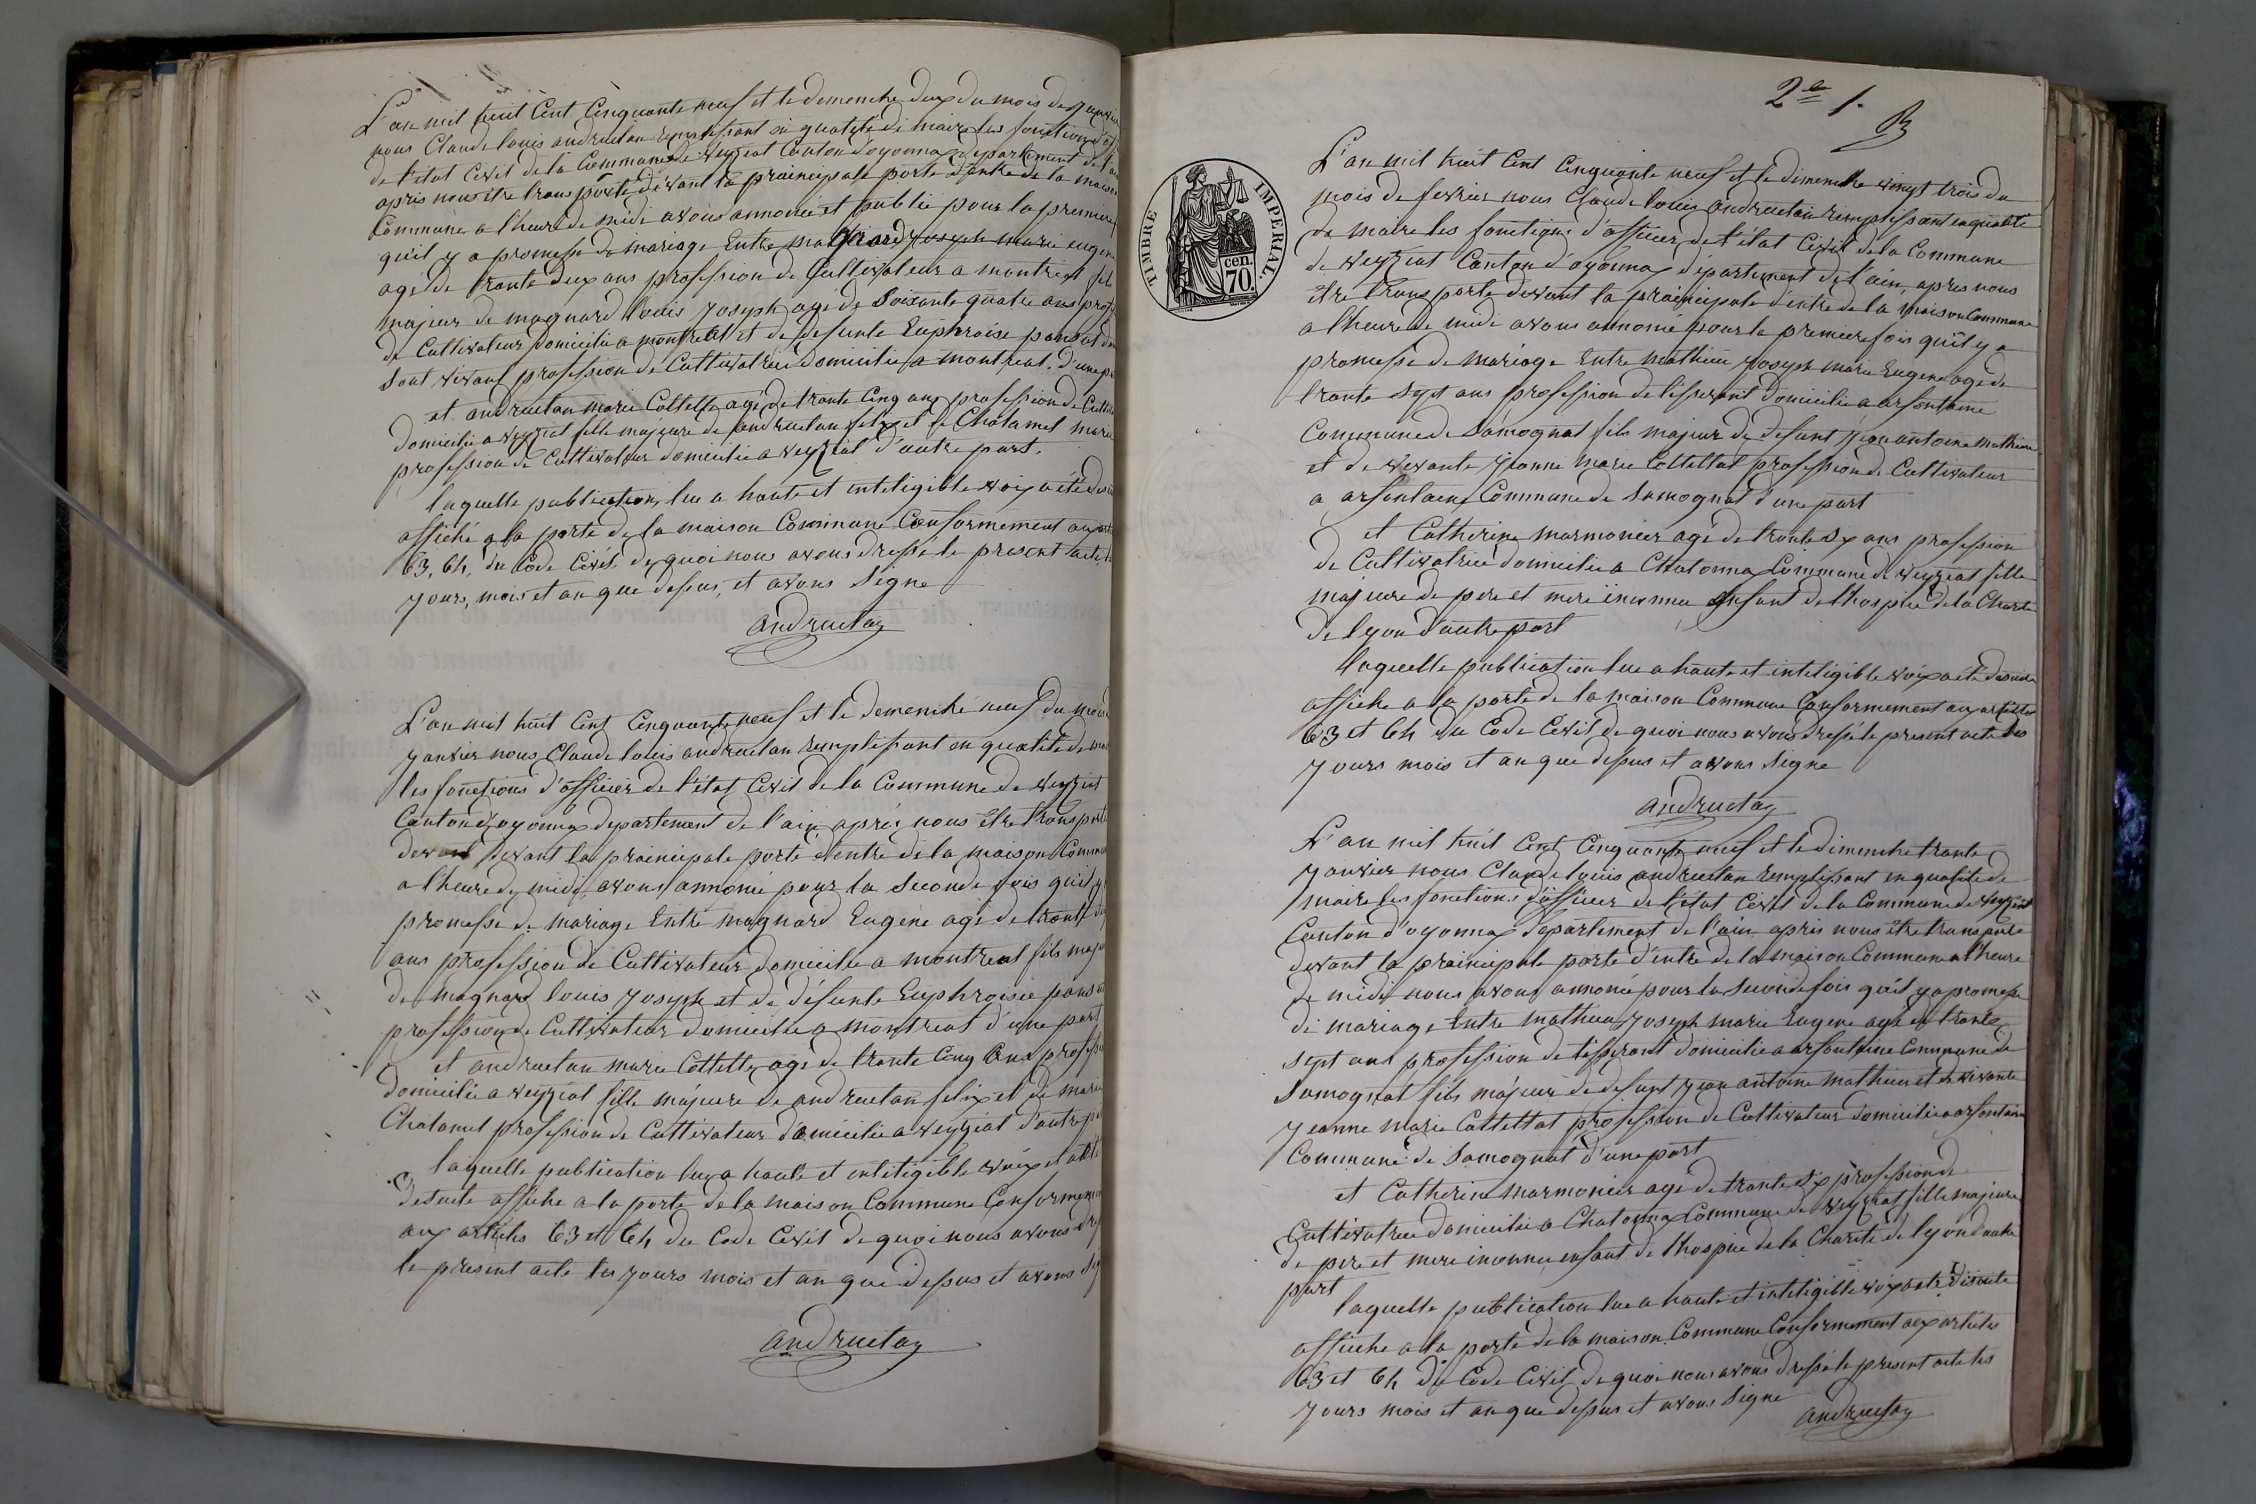 L'an mil huit Cent Cinquante neuf et le dimenche deux du mois de Janvier
nous Claude louis andruetan remplissant en qualité de maire les fonctions d'of
de l'état Civil de la Commune de veyziat Canton d'oyonnax departement de l'ain
apres nous être transporté devant la principale porte d'entré de la maison
Commune a l'heure de midi avons annoncé et publié pour la premiere
qu'il y a promesse de mariage Entre magnard Joseph marie eugene
agé de trante deux ans profession de Cultivateur a montreal fils
majeur de magnard louis Joseph agé de Soixante quatre ans prof
de Cultivateur domicilié a montreal et de defunte Euphroise pansat
Sont vivant profession de Cultivatrice domiciliée a montreal. d'une p
et andruetan marie Collette agé de trante Cinq ans profession de Cultiv
domicilié a veyziat fille majeure de andruetan felix et de Chatamel marie
profession de Cultivateur domicilié a veyziat d'autre part.
laquelle publication lue a haute et inteligible voix a été de
affiché a la porte de la maison Commune Conformément aux art
63, 64, du Code Civil de quoi nous avons dressé le présent acte, l
Jours, mois et an que dessus, et avons Signé
andruetan
L'an mil huit Cent Cinquante neuf et le dimenche neuf du mois
Janvier nous Claude louis andruetan remplissant en qualité de mai
les fonctions d'officier de l'état Civil de la Commune de veyziat
Canton d'oyonnax departement de l'ain, aprés nous être transporté
devant devant la principale porte d'entré de la maison Commu
a l'heure de midi, avons annoncé pour la Seconde fois qu'il y
promesse de mariage Entre magnard Eugène agé de trante d
ans profession de Cultivateur domicilié a montreal fils maje
de magnard louis Joseph et de défunte Euphroisie pansa
profession de Cultivateur domicilié a montréal d'une part
et andruetan marie Collette agé de trante Cinq ans profess
domicilié a veyziat fille majeure de andruetan felix et de marie
Chatamel profession de Cultivateur domicilié a veyziat d'autre p
laquelle publication lue a haute et inteligible voix et a été
desuite affiché a la porte de la maison Commune Conformémen
aux articles 63 et 64 du Code Civil de quoi nous avons dre
le present acte les jours mois et an que dessus et avons Sig
andruetan
2e f.
TIMBRE IMPERIAL.
cen.
70.
L'an mil huit Cent Cinquante neuf et le dimenche vingt trois du
mois de fevrier nous Claude louis andruetan remplissant en qualité
de maire les fonctions d'officier de l'état Civil de la Commune
de veyziat Canton d'oyonnax département de l'ain, apres nous
être transporté devant la principale d'entré de la maison Commune
a l'heure de midi avons annoncé pour la premiere fois qu'il y a
promesse de mariage Entre mathieu Joseph marie Eugene agé de
trante sept ans profession de tisserant domicilié a arfontaine
Commune de Samognat fils majeur de defunt Jean antoine mathieu
et de vivante Jeanne Marie Cottettat profession de Cultivateur
a arfontaine Commune de Samognat d'une part
et Catherine marmonier agé de trante six ans profession
de Cultivatrice domicilié a Chatonnax Commune de veyziat fille
majeure de pere et mere inconnu enfant de l'hospice de la Charité
de lyon d'autre part
laquelle publication lue a haute et inteligible voix a été desuite
affiché a la porte de la maison Commune Conformement aux articles
63 et 64 du Code Civil de quoi nous avons dressé le present acte les
Jours mois et an que dessus et avons Signé
andruetan
L'an mil huit Cent Cinquante neuf et le dimenche trante
Janvier nous Claude louis andruetan remplissant en qualité de
maire les fonctions d'officier de l'état Civil de la Commune de veyziat
Canton d'oyonnax departement de l'ain apres nous être transporté
devant la principale porte d'entré de la maison Commune a l'heure
de midi nous avons annoncé pour la Seconde fois qu'il y a promesse
de mariage Entre mathieu Joseph marie Eugene agé de trante
sept ans profession de tisserant domicilié a arfontaine Commune de
Samognat fils majeur de defunt Jean antoine mathieu et de vivante
Jeanne Marie Cottettat profession de Cultivateur domicilié a arfontaine
Commune de Samognat d'une part
et Catherine marmonier agé de trante six profession de
Cultivatrice domicilié a Chatonnax Commune de veyziat fille majeure
de pere et mere inconnu enfant de l'hospice de la Charité de lyon d'autre
part
laquelle publication lue a haute et inteligible voix a été desuite
affiché a la porte de la maison Commune Conformément aux articles
63 et 64 du Code Civil de quoi nous avons dressé le present acte les
Jours mois et an que dessus et avons Signé
andruetan